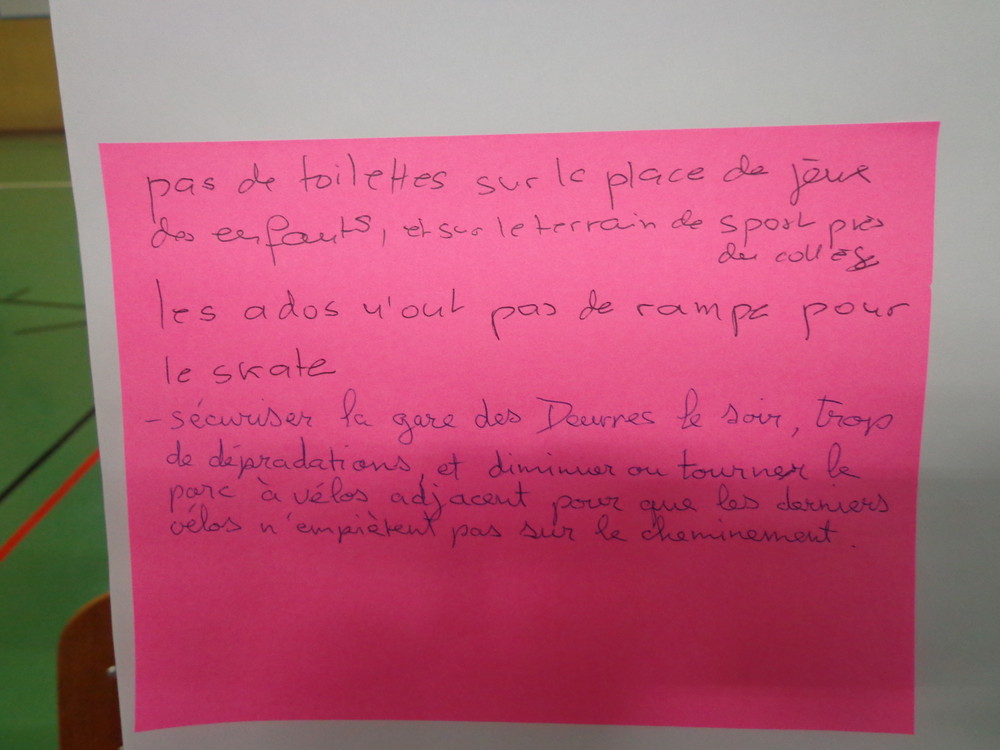 pas de toilettes sur la place de jeux
des enfants, et sur le terrain de sport près
du collège
les ados n'ont pas de rampe pour
le skate
- sécuriser la gare des le soir, trop
de dépradations, et diminuer ou tourner le
parc à vélos adjacent pour que les derniers
vélos n'empiètent pas sur le cheminement.